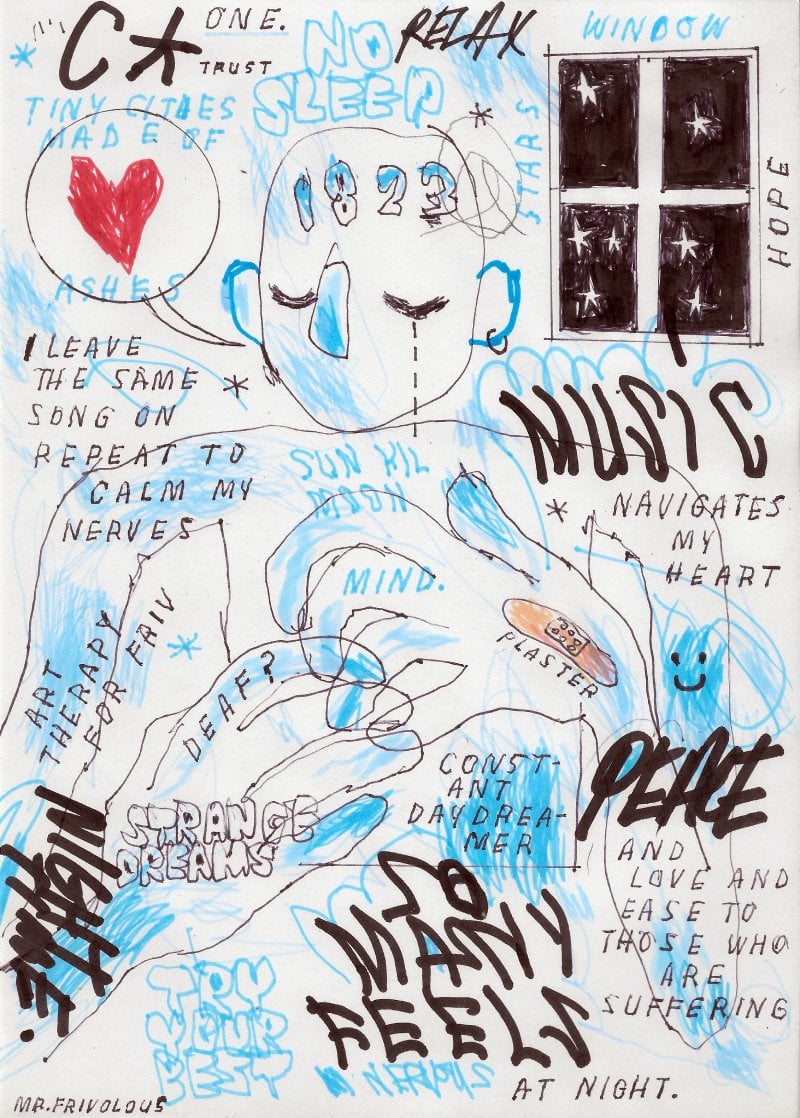 C*
ONE.
TRUST
NO
SLEEP
RELAX
WINDOW
STARS
HOPE
TINY CITIES
MADE OF
ASHES
1823
I LEAVE
THE SAME
SONG ON
REPEAT TO
CALM MY
NERVES
SUN KIL
MOON
MUSIC
NAVIGATES
MY
HEART
MIND.
PLASTER
ART
THERAPY
FOR FRIV
DEAF?
STRANGE
DREAMS
CONST-
ANT
DAYDREA-
MER
PEACE
AND
LOVE AND
EASE TO
THOSE WHO
ARE
SUFFERING
NIGHT
TIME.
SO
MANY
FEELS
YOUR
NERVOUS
AT NIGHT.
MR.FRIVOLOUS